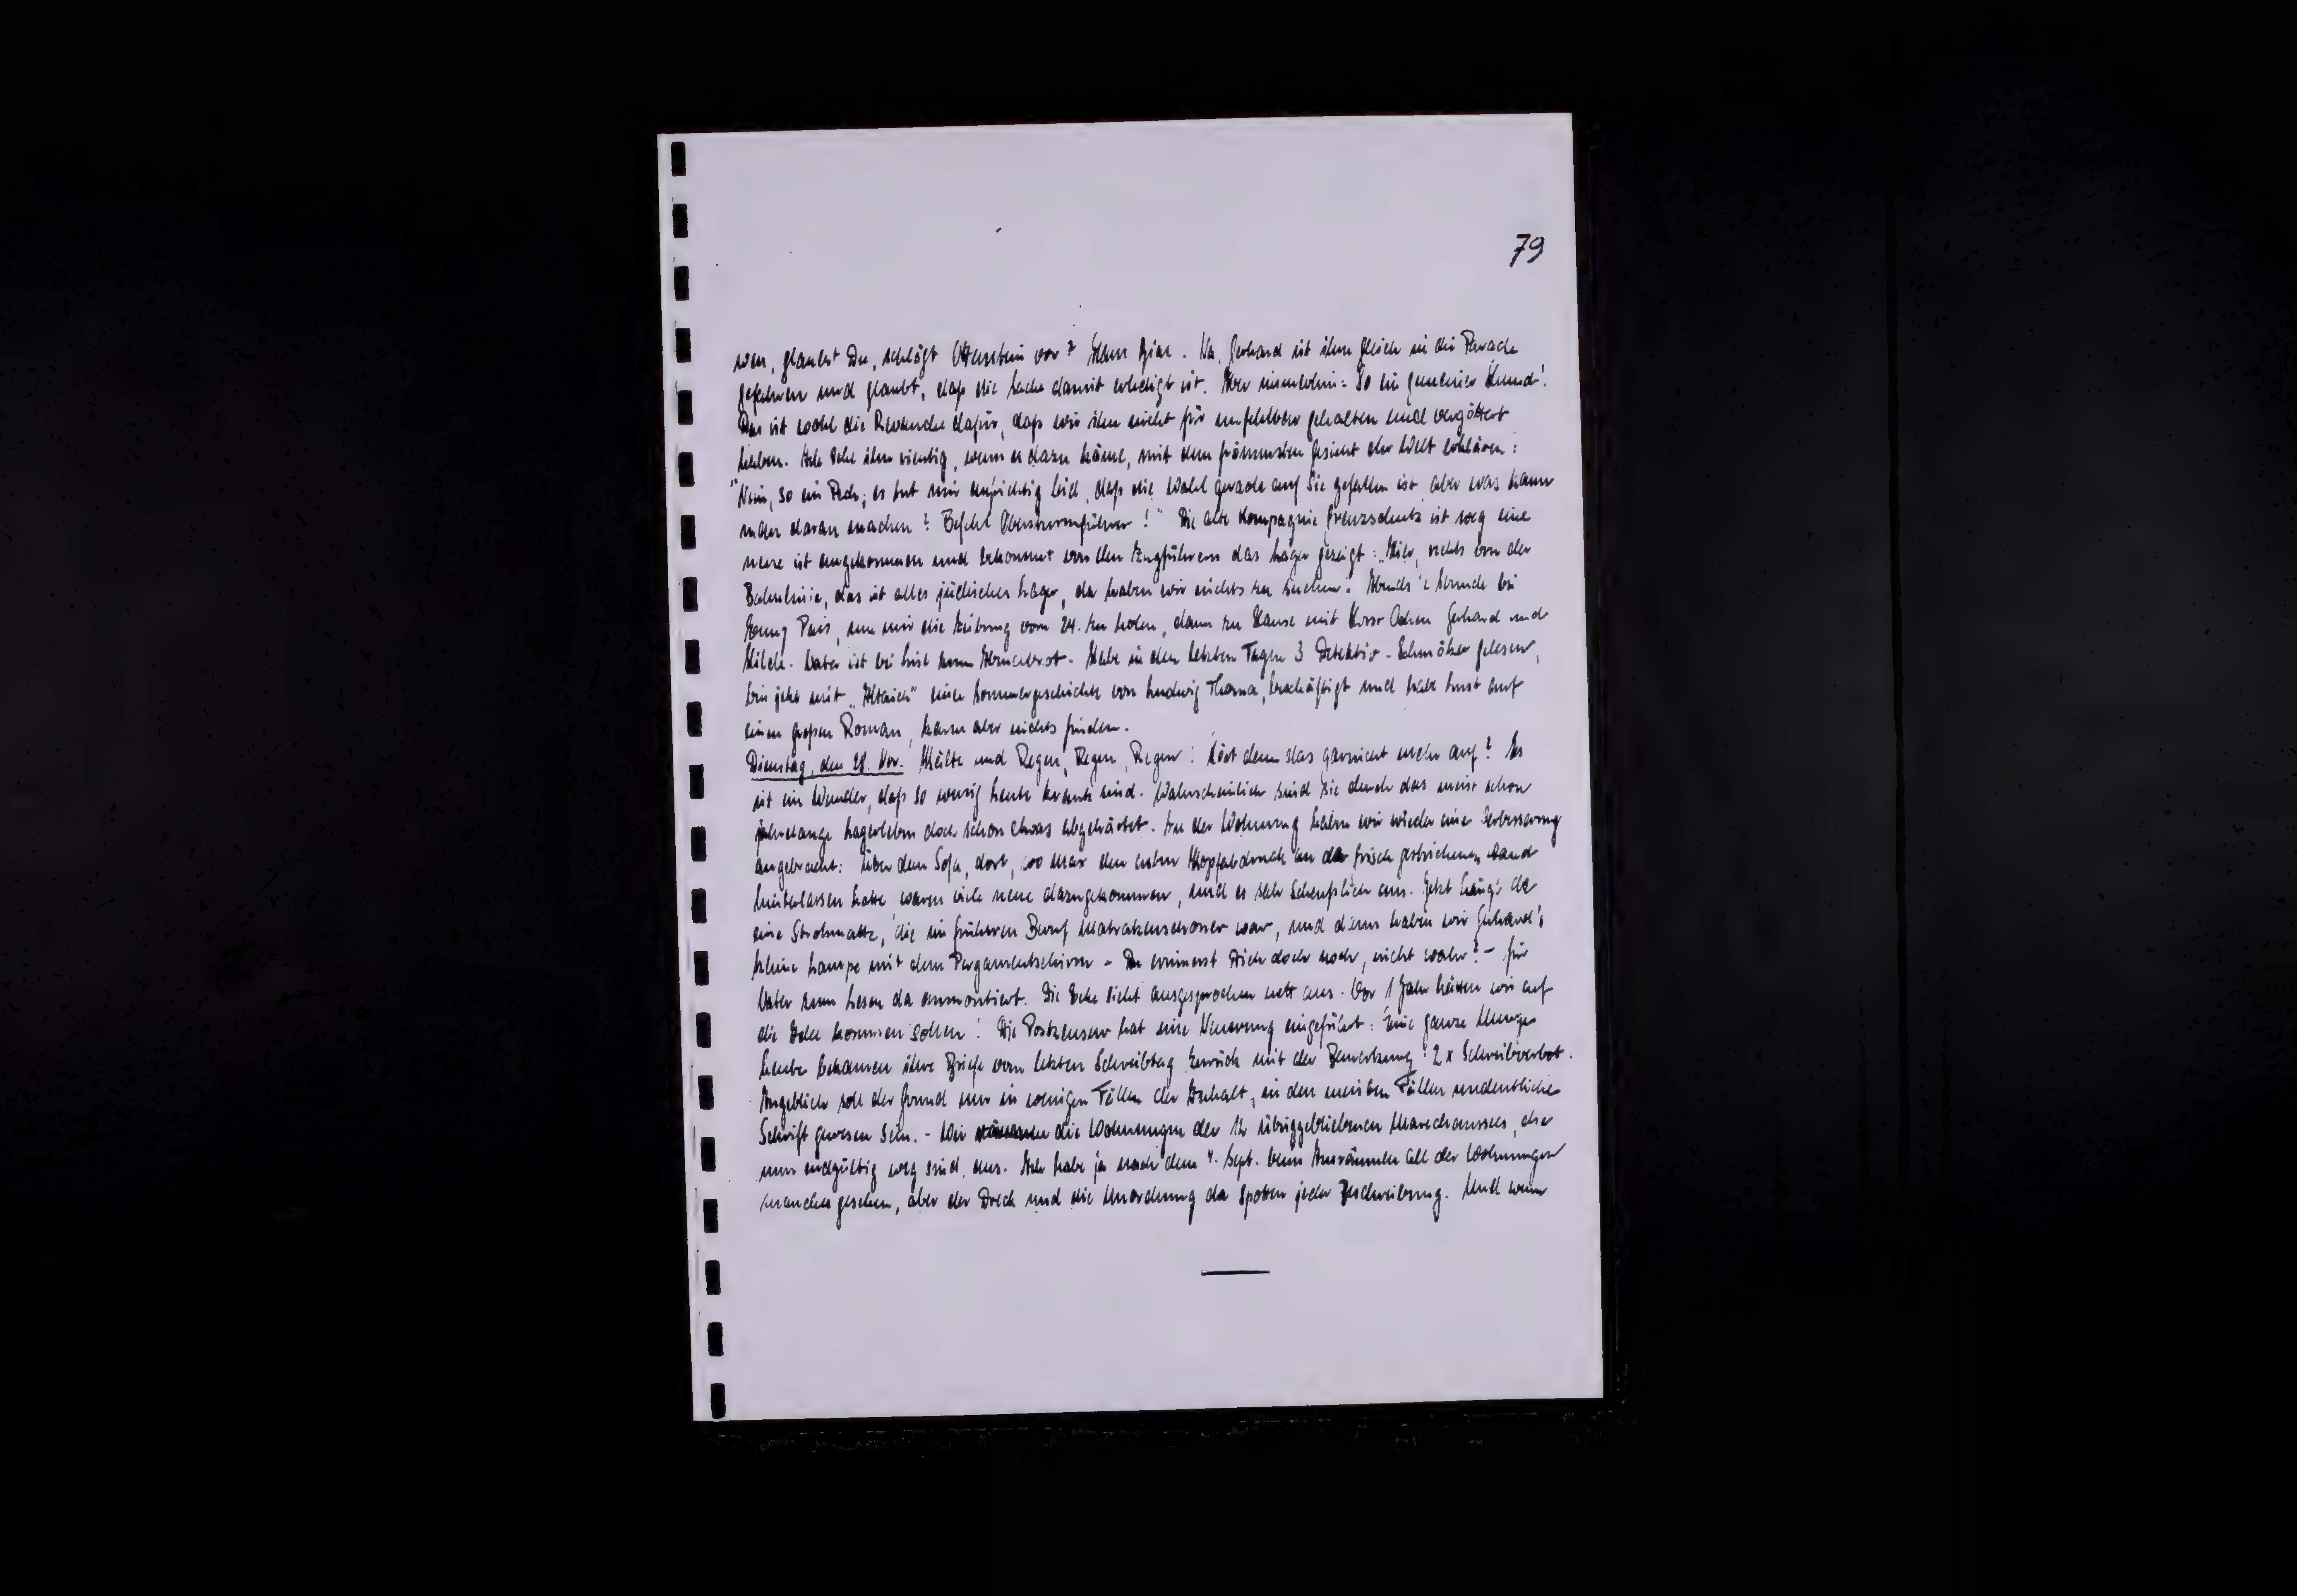 79
wen, glaubst Du, schlägt Ottenstein vor? Na, Gerhard ist ihm gleich in die Parade
gefahren und glaubt, daß die Sache damit erledigt ist. Aber immerhin: So ein gemeiner Hund!
Das ist wohl die Revanche dafür, daß wir ihn nicht für unfehlbar gehalten und vergöttert
haben. Ich sehe ihn richtig, wenn es dazu käme, mit dem frömmsten Gesicht der Welt erklären:
"Nein, so ein Pech; es tut mir aufrichtig leid, daß die Wahl gerade auf Sie gefallen ist, aber was kann
man daran machen? Befehl Obersturmführer!" Die alte Kompagnie Grenzschutz ist weg eine
neue ist angekommen und bekommt von den Zugführern das Lager gezeigt: "Hier, rechts von der
Bahnlinie, das ist alles jüdisches Lager, da haben wir nichts zu suchen. Abends ½ Stunde bei
um mir die Zeitung vom 24. zu holen, dann zu Hause mit Gerhard und
Hilde. Vater ist bei zum Abendbrot. Habe in den letzten Tagen 3 Detektiv-Schmöker gelesen,
bin jetzt mit "Altaich" eine Sommergeschichte von Ludwig Thoma, beschäftigt und habe Lust auf
einen großen Roman, kann aber nichts finden.
Dienstag, den 28. Nov. Kälte und Regen, Regen, Regen! Hört denn das garnicht mehr auf? Es
ist ein Wunder, daß so wenig Leute krank sind. Wahrscheinlich sind sie durch das meist schon
jahrelange Lagerleben doch schon etwas abgehärtet. In der Wohnung haben wir wieder eine Verbesserung
angebracht: Über dem Sofa, dort, wo Max den ersten Kopfabdruck an der frisch gestrichenen Wand
hinterlassen hatte, waren viele neue dazugekommen, und es sah scheußlich aus. Jetzt hängt da
eine Strohmatte, die im früheren Beruf Matratzenschoner war, und daran haben wir Gerhard's
kleine Lampe mit dem Pergamentschirm - Du erinnerst Dich doch noch, nicht wahr? - für
Vater zum Lesen da anmontiert. Die Ecke sieht ausgesprochen nett aus. Vor 1 Jahr hätten wir auf
die Idee kommen sollen! Die Postzensur hat eine Neuerung eingeführt: Eine ganze Menge
Leute bekamen ihre Briefe vom letzten Schreibtag zurück mit der Bemerkung: 2 x Schreibverbot.
Angeblich soll der Grund nur in wenigen Fällen der Inhalt, in den meisten Fällen undeutliche
Schrift gewesen sein. - Wir räumen die Wohnungen der 12 übriggebliebenen Marechaussees, die
nun endgültig weg sind, aus. Ich habe ja nach dem 4. Sept. beim Ausräumen all der Wohnungen
manches gesehen, aber der Dreck und die Unordnung da spotten jeder Beschreibung. Und wenn